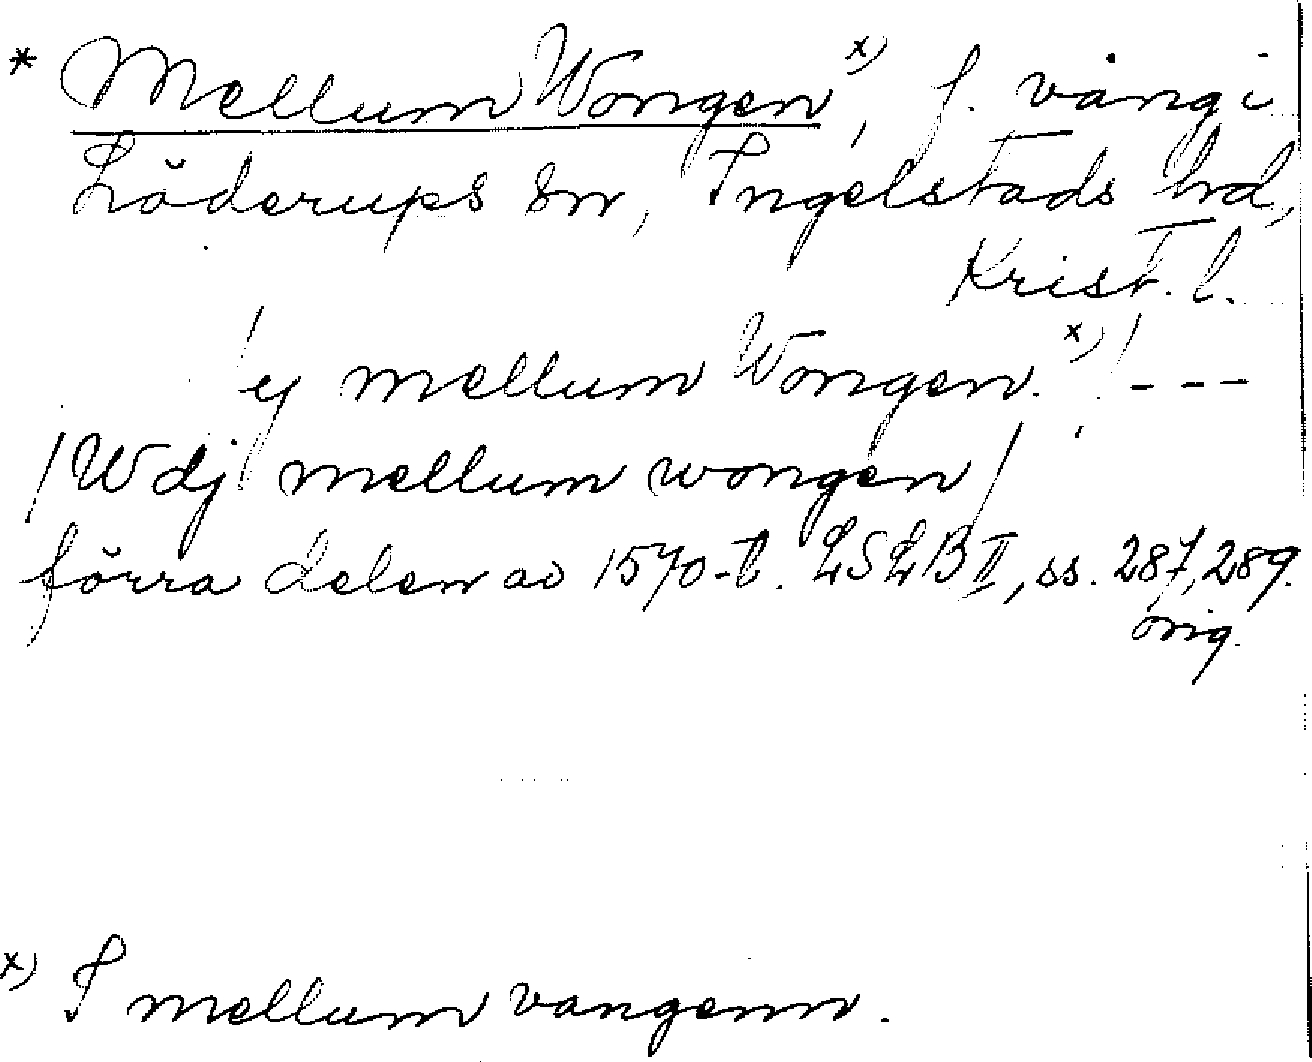 * Mellum Wongen x), f. vång i
Löderups sn, Ingelstads hd,
Krist. l.
/ y mellum Wongen. x) / ---
/ Wdj mellum wongen /
förra delen av 1570-t. LSLB II, ss. 287, 289.
orig.
x) I mellum vangenn.